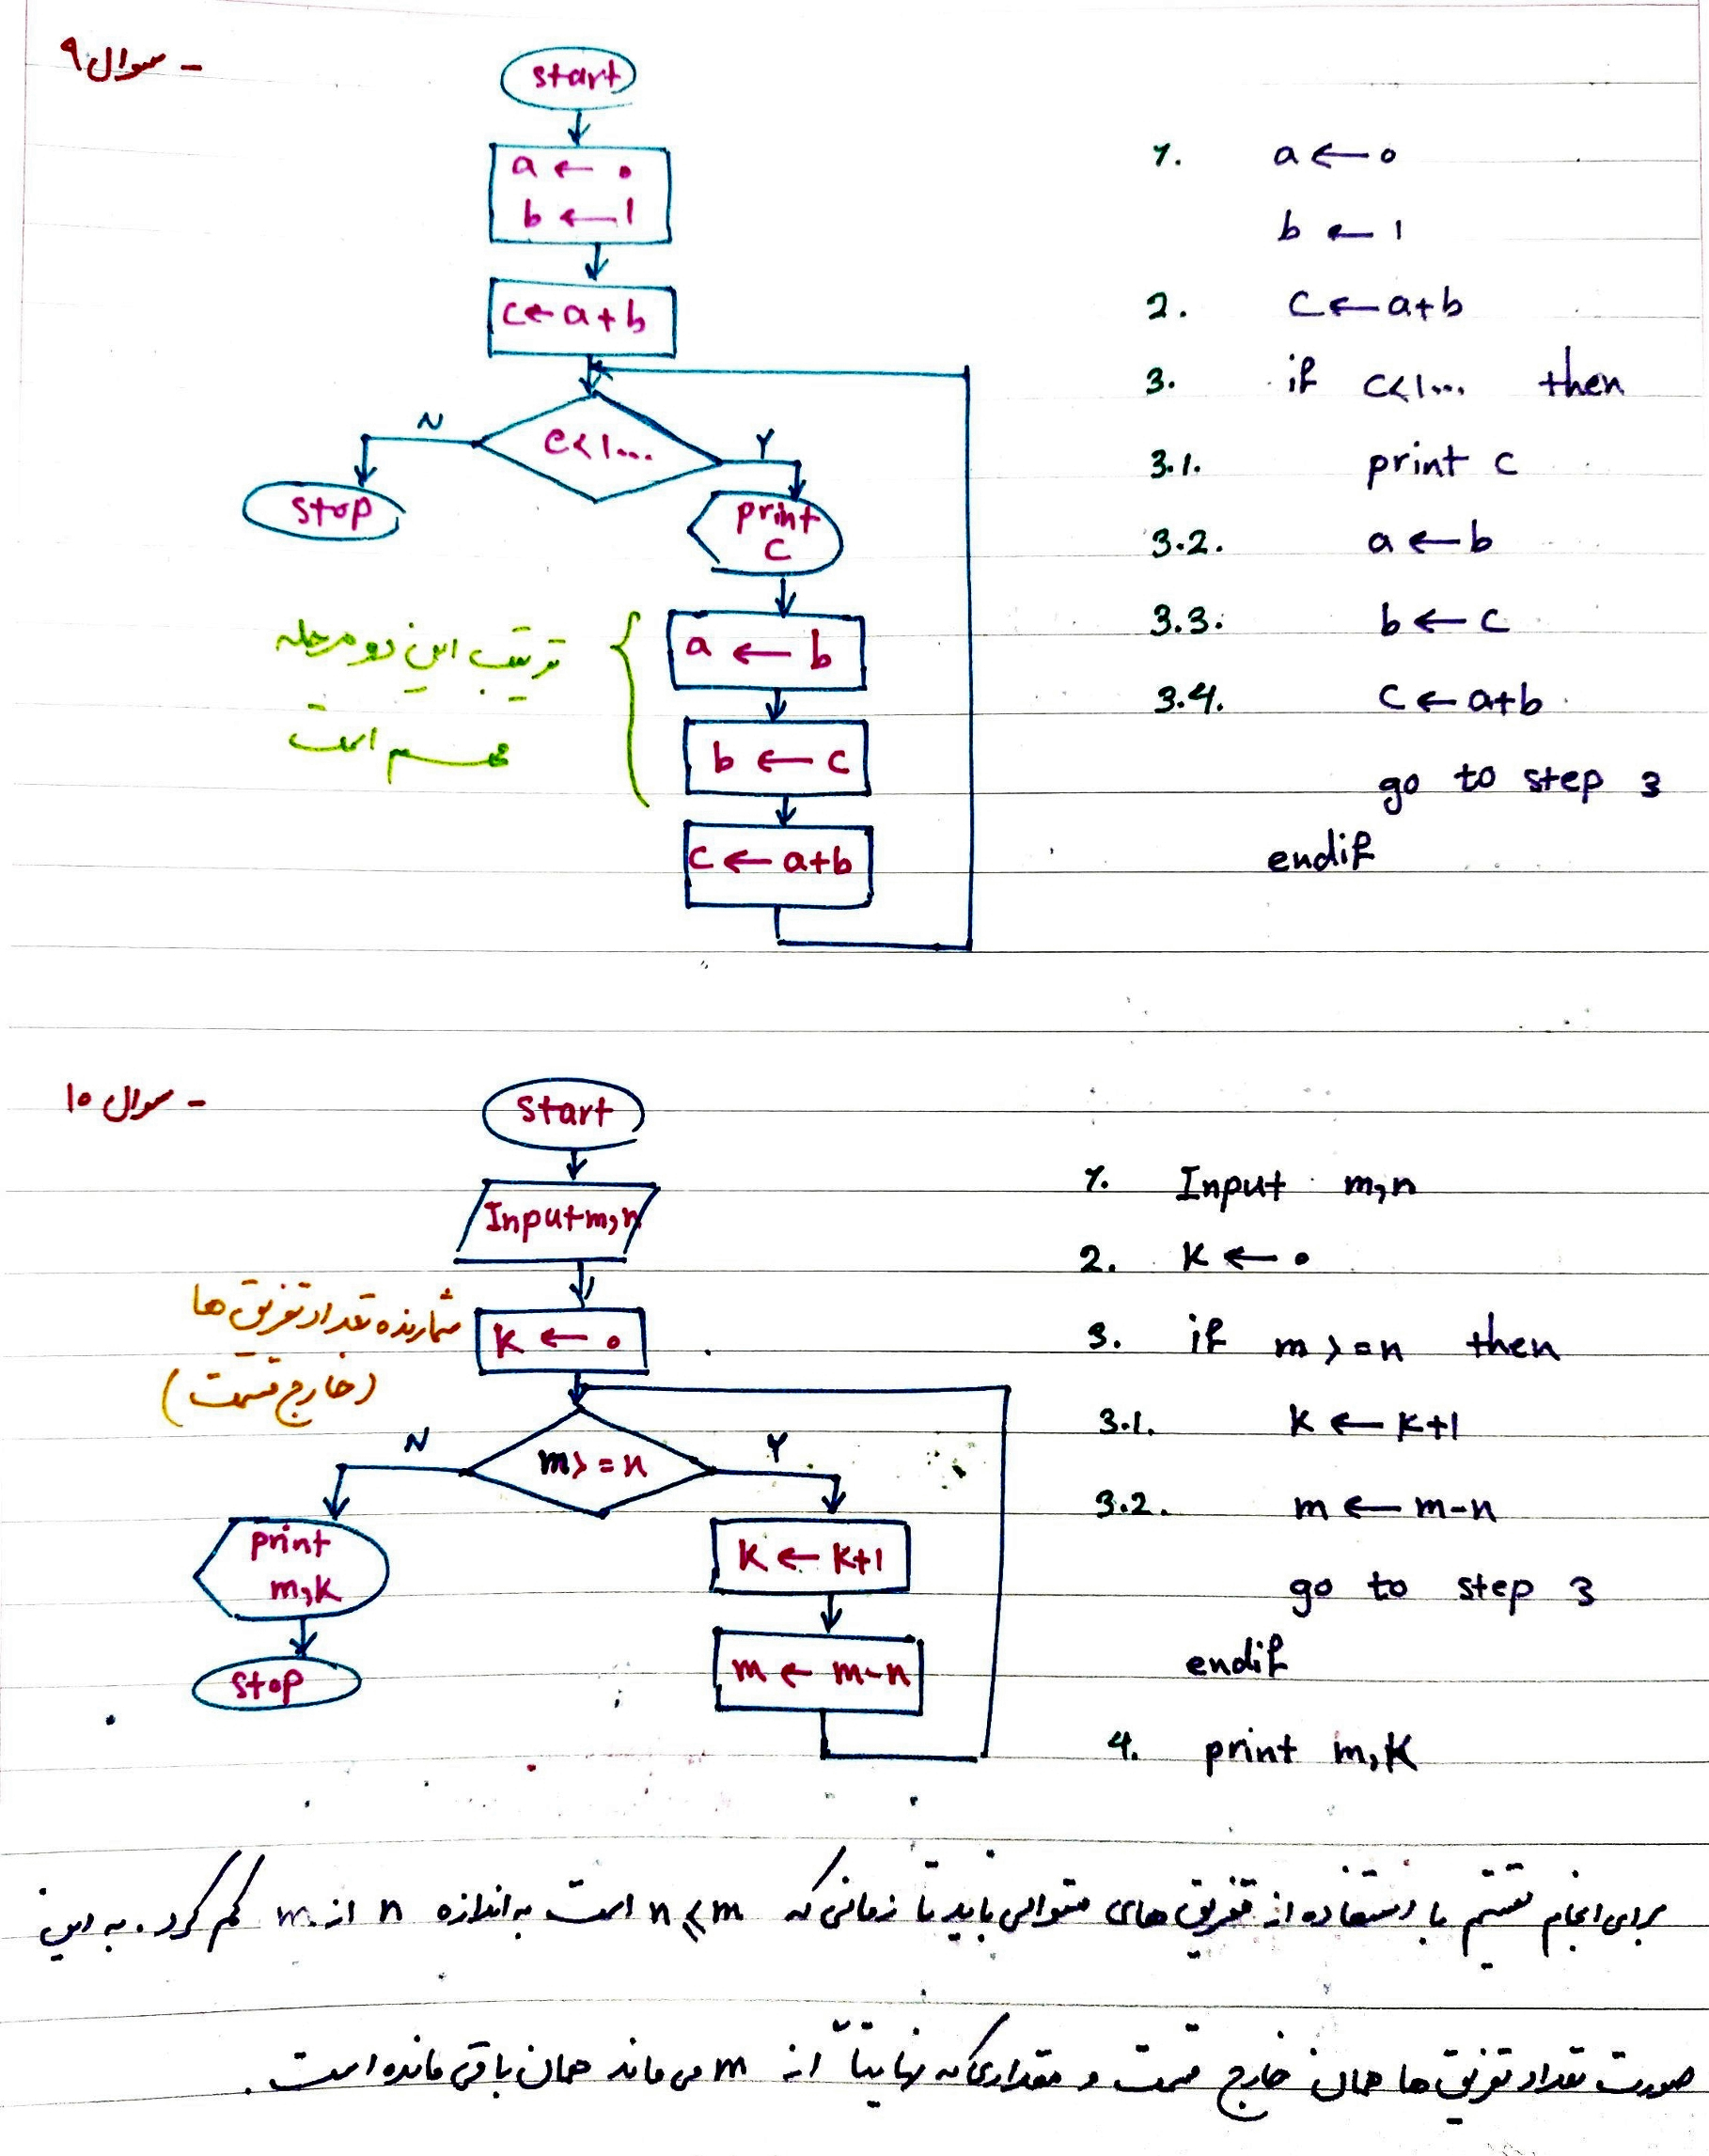 - سوال ۹
start
a ← ۰
b ← 1
c ← a + b
c < 1۰۰۰
N
Y
stop
print
c
a ← b
b ← c
c ← a+b
ترتیب این دو مرحله
مهم است
1. a ← ۰
b ← 1
2. c ← a+b
3. if c<1۰۰۰ then
3.1. print c
3.2. a ← b
3.3. b ← c
3.4. c ← a+b
go to step 3
endif
- سوال ۱۰
start
Input m,n
شمارنده تعداد تفریق ها
(خارج قسمت)
k ← ۰
m >= n
N
Y
print
m,k
stop
k ← k+1
m ← m-n
1. Input m,n
2. k ← ۰
3. if m >= n then
3.1. k ← k+1
3.2. m ← m-n
go to step 3
endif
4. print m,k
برای انجام تقسیم با استفاده از تفریق های متوالی باید تا زمانی که n ⩽ m است به اندازه n از m کم کرد. به این
صورت تعداد تفریق ها همان خارج قسمت و مقداری که نهایتاً از m می ماند همان باقی مانده است.